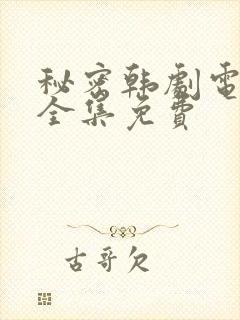 秘密韩劇電
全集免费
古哥欠